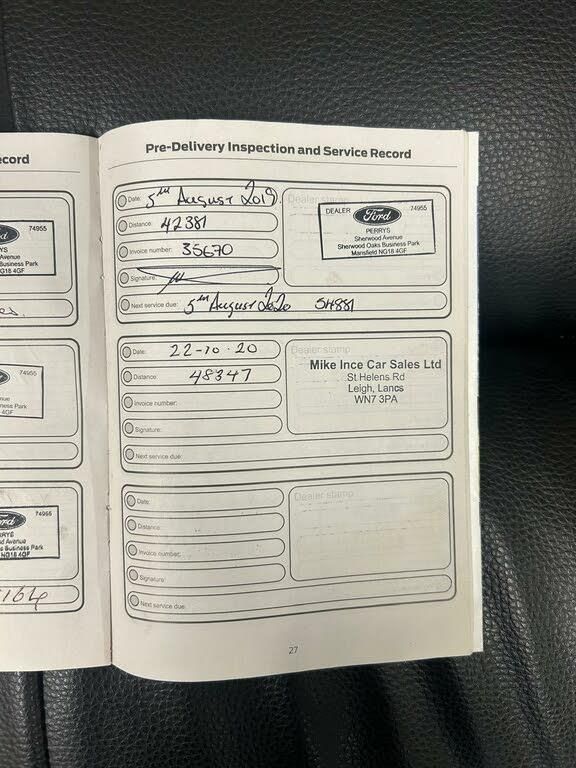 ecord
74955
YS
Avenue
Business Park
NG18 4GF
es.
74955
nue
Business Park
4GF
74955
RRYS
d Avenue
s Business Park
NG18 4GF
164
Pre-Delivery Inspection and Service Record
Date: 5th August 2019.
Distance: 42381
Invoice number: 35670
Signature:
Next service due: 5th August 2020 54881
Dealer stamp
DEALER Ford 74955
PERRYS
Sherwood Avenue
Sherwood Oaks Business Park
Mansfield NG18 4GF
Date: 22-10-20
Distance: 48347
Invoice number:
Signature:
Next service due:
Dealer stamp
Mike Ince Car Sales Ltd
St Helens Rd
Leigh, Lancs
WN7 3PA
Date:
Distance:
Invoice number:
Signature:
Next service due:
Dealer stamp
27